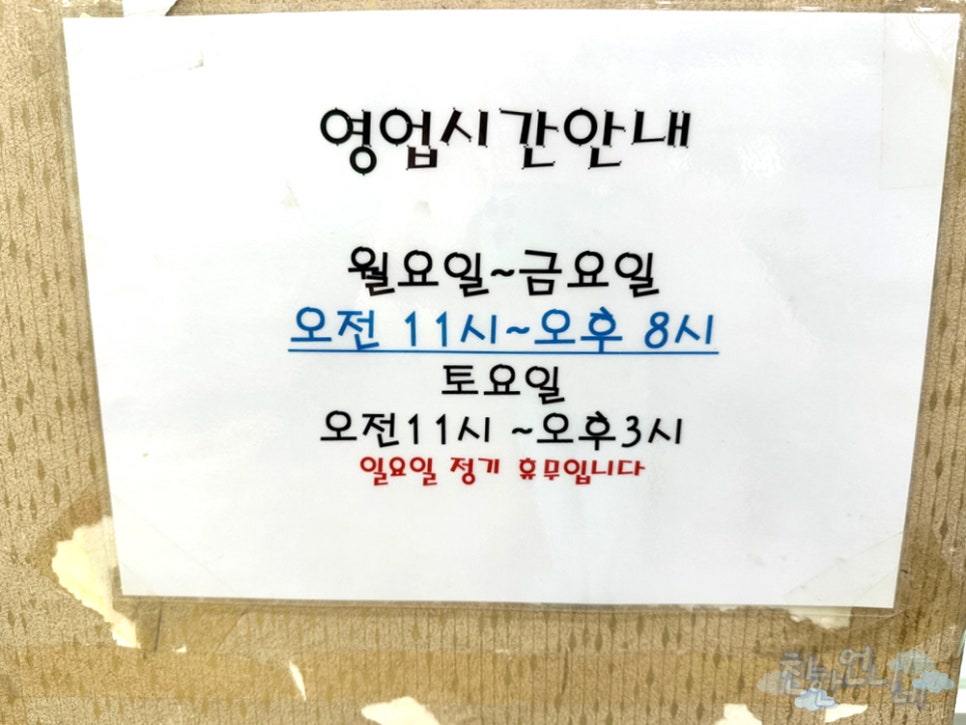 영업시간안내
월요일~금요일
오전 11시~오후 8시
토요일
오전11시 ~오후3시
일요일 정기 휴무입니다